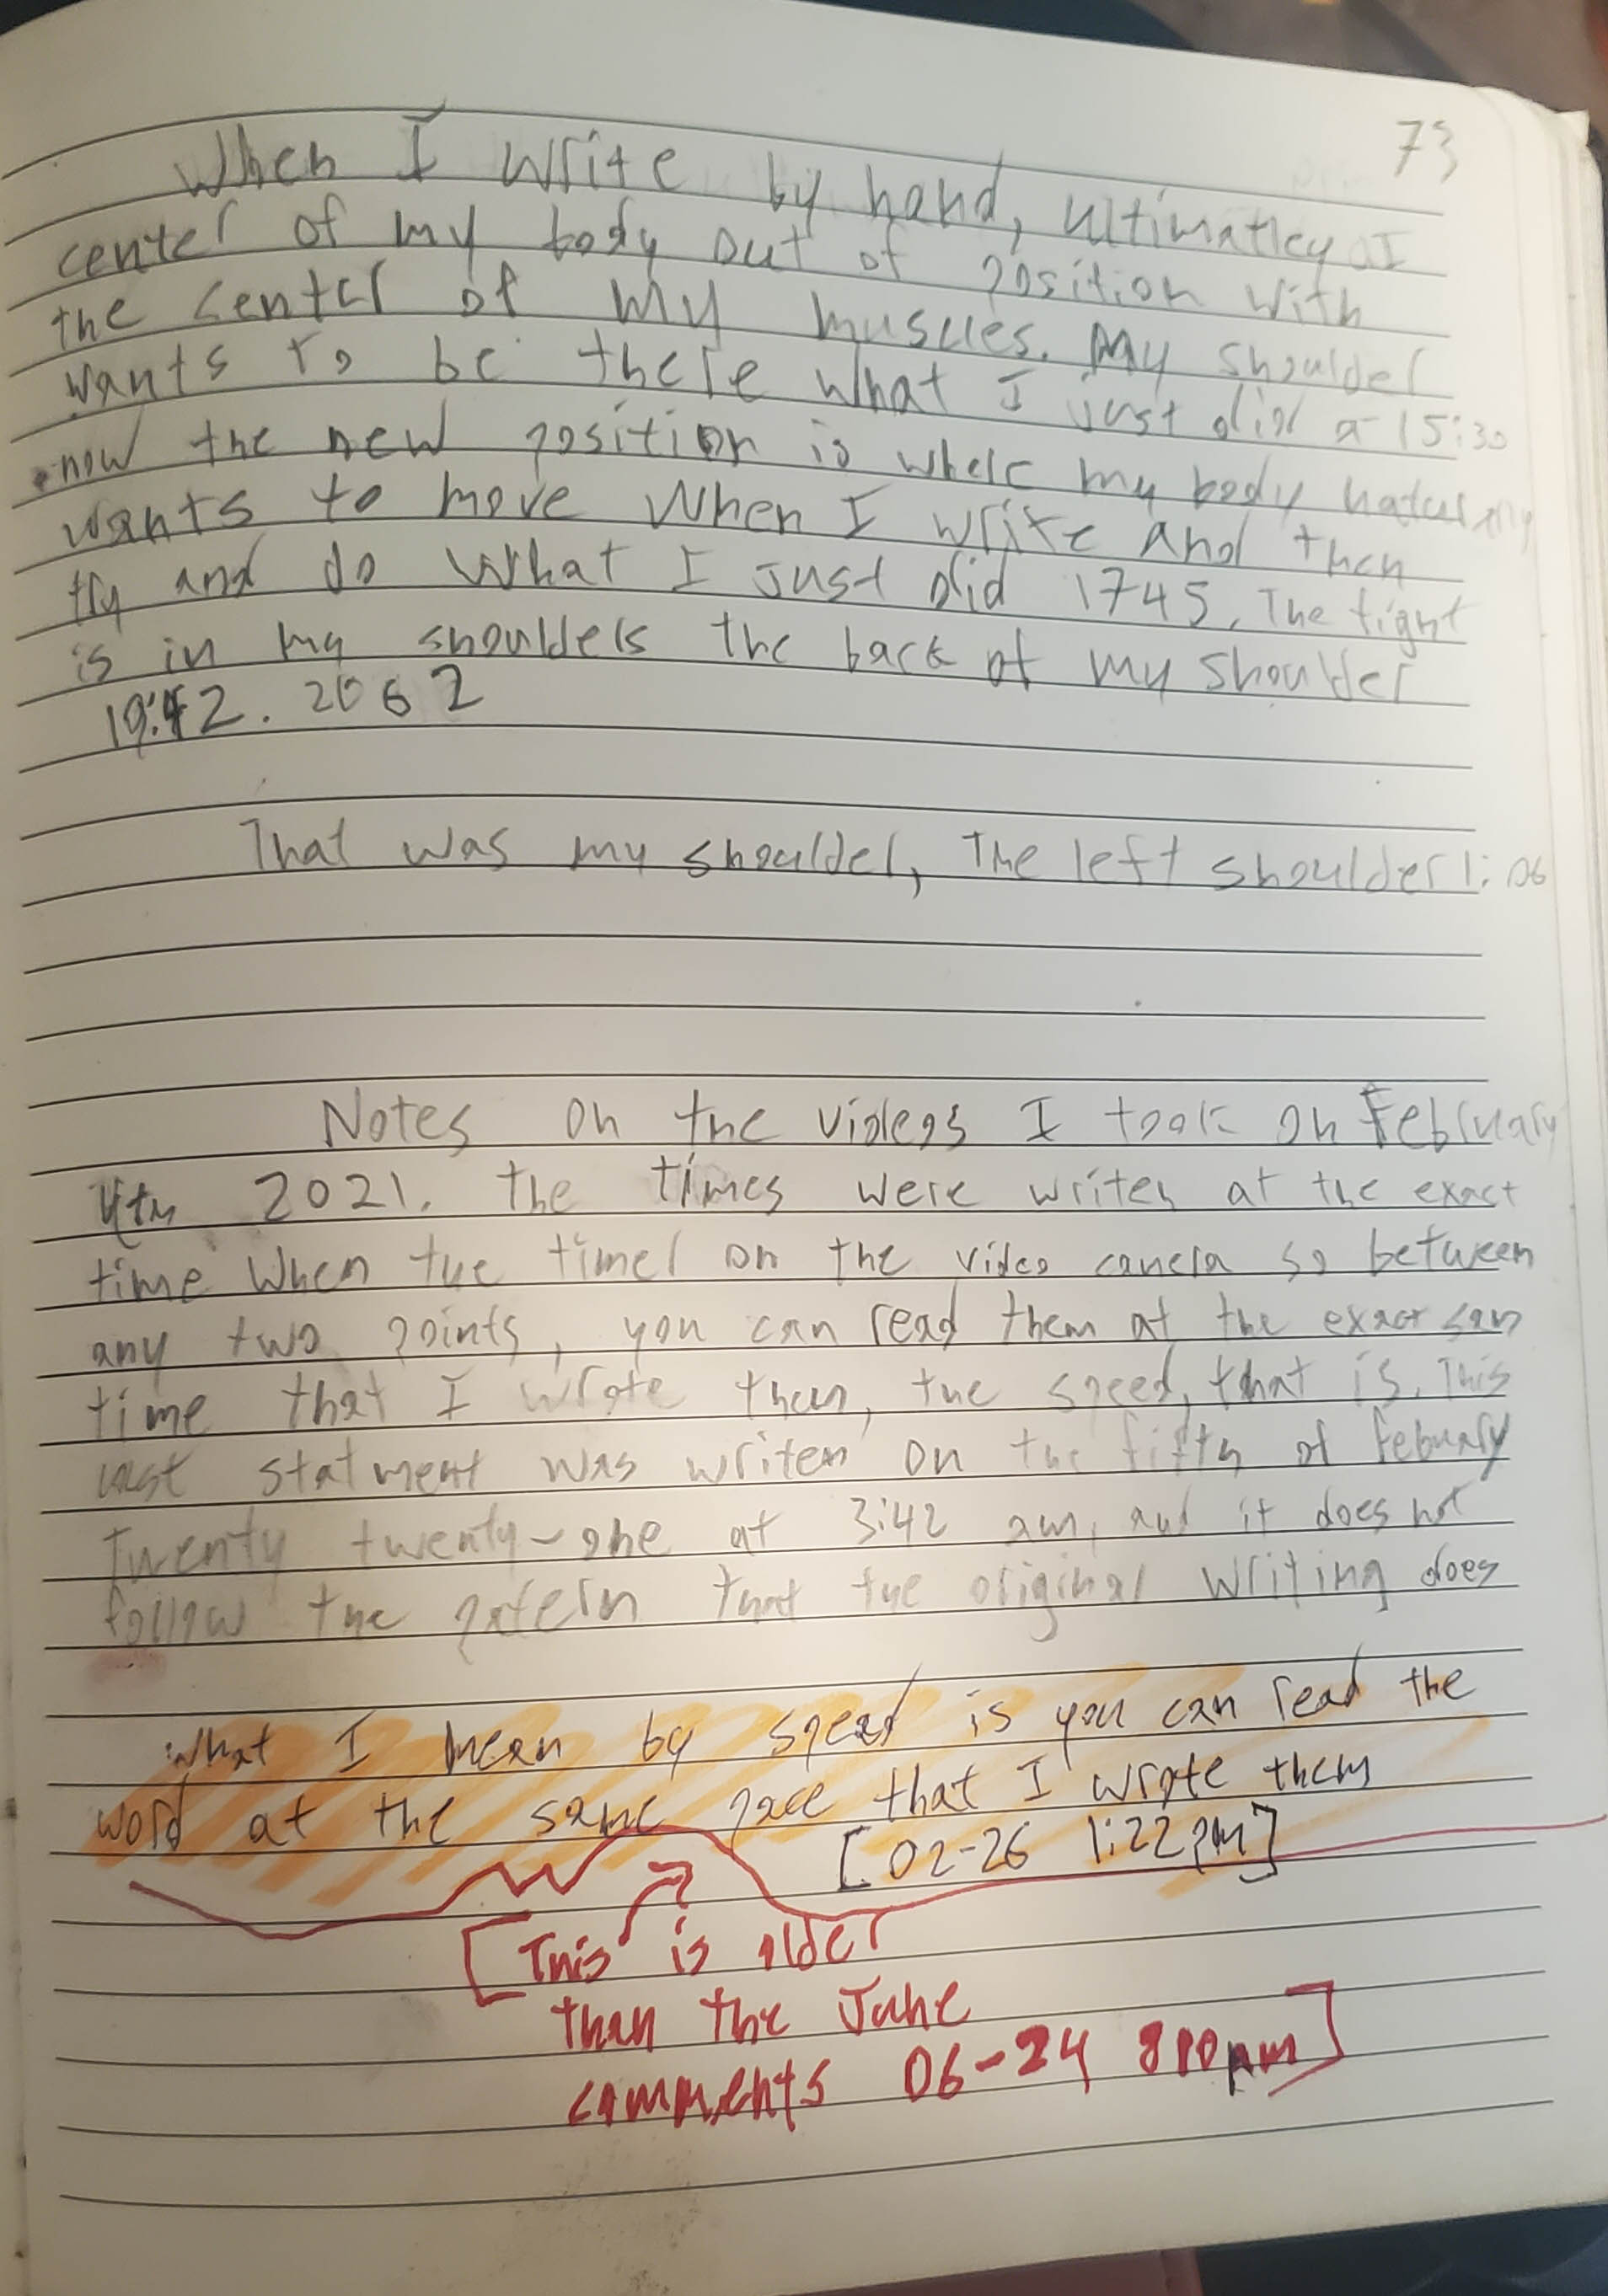 73
When I write by hand, ultimatley I
center of my body out of position with
the center of my muscles. My shoulder
wants to be there what I just did a 15:30
now the new position is where my body naturally
wants to move when I write and then
try and do what I just did 1745. The tight
is in my shoulders the back of my shoulder
19:42. 2062
That was my shoulder, The left shoulder 1:06
Notes on the videos I took on February
4th 2021. the times were writen at the exact
time when the timer on the video camera so between
any two points, you can read them at the exact sam
time that I wrote them, the speed, that is. This
last statment was writen on the fifth of Febuary
Twenty twenty-one at 3:42 am, and it does not
follow the patern that the original writing does
What I mean by spead is you can read the
word at the same pace that I wrote them
[02-26 1:22PM]
[This is older
than the June
comments 06-24 810pm]